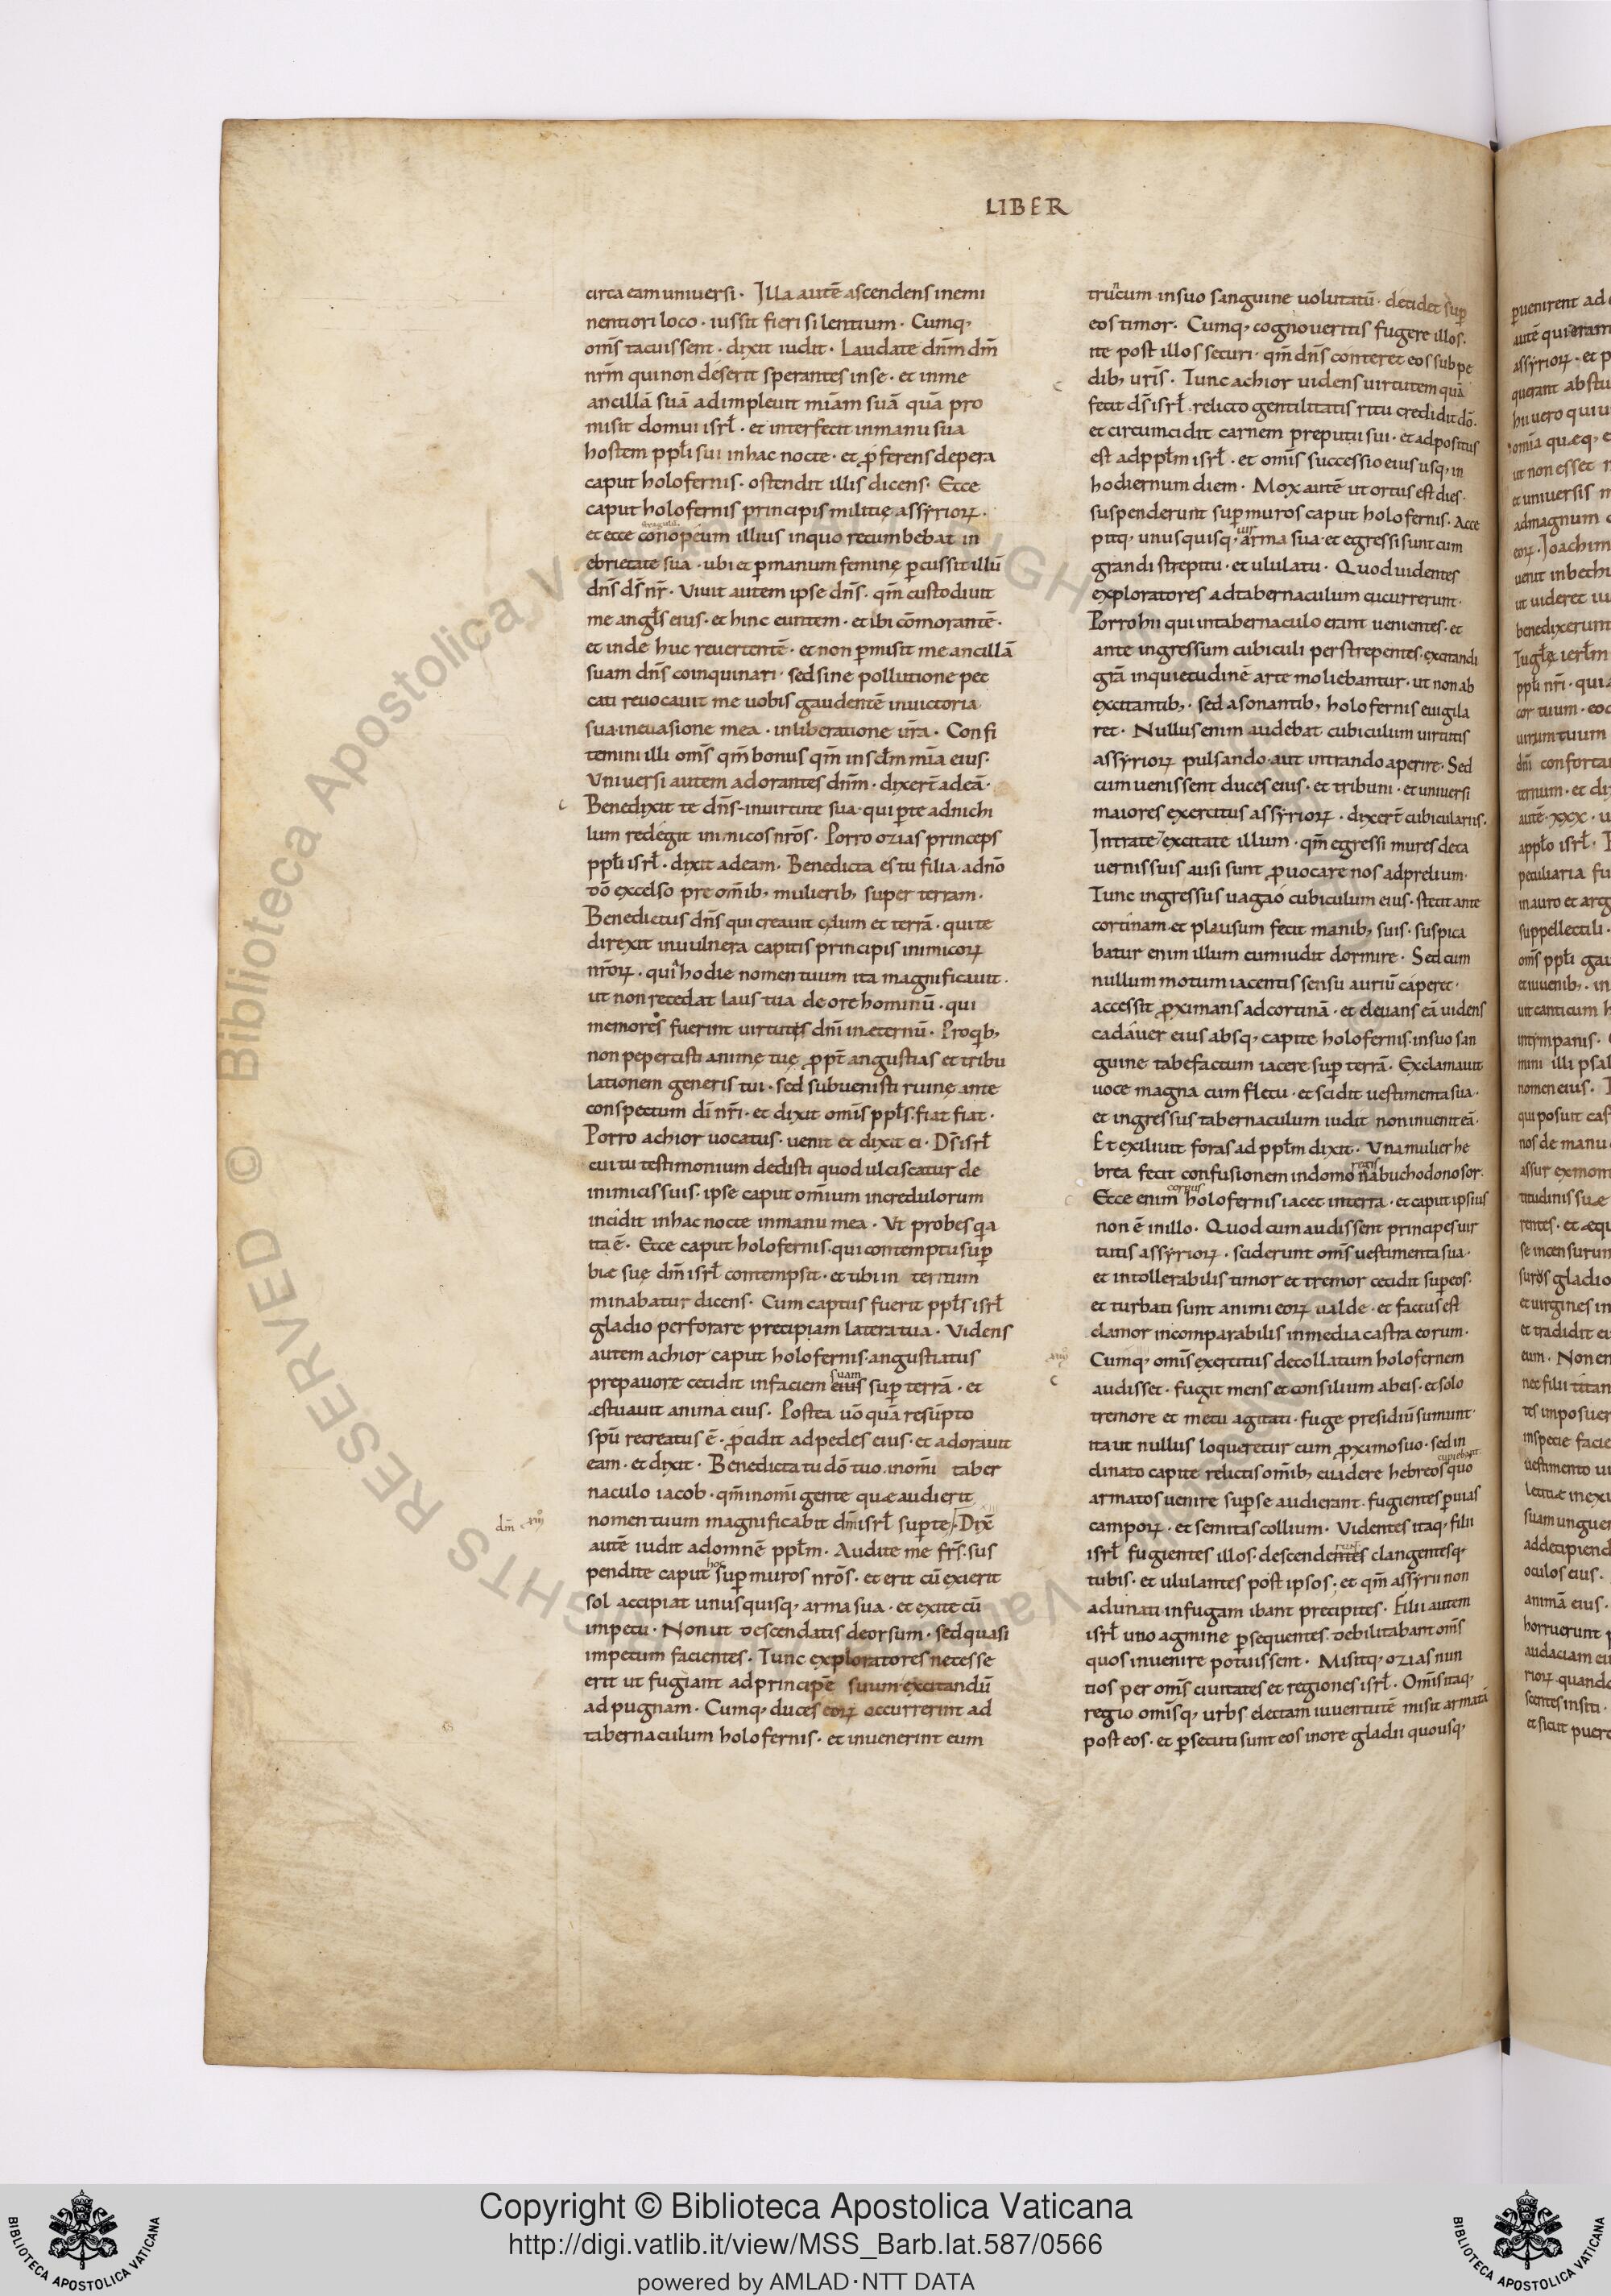 LIBER
circa eam uniuersi · Illa autē ascendens in emi
nentiori loco · iussit fieri silentium · Cumq;
om̄s tacuissent · dixit iudit · Laudate dn̄m dm̄
nr̄m qui non deserit sperantes in se · et in me
ancillā suā adimpleuit miām suā quā pro
misit domui isrł · et interfecit in manu sua
hostem ppłi sui in hac nocte · et ꝓferens de pera
caput holofernis · ostendit illis dicens · Ecce
caput holofernis principis militię assyrioꝝ ·
et ecce conopeum illius in quo recumbebat in
ebrietate sua · ubi et ꝑ manum feminę ꝑcussit illū
dn̄s ds̄ nr̄ · Viuit autem ipse dn̄s · qm̄ custodiuit
me angłs eius · et hinc euntem · et ibi cōmorantē ·
et inde huc reuertentē · et non ꝑmisit me ancillā
suam dn̄s coinquinari · sed sine pollutione pec
cati reuocauit me uobis gaudentē in uictoria
sua · in euasione mea · in liberatione ur̄a · Confi
temini illi om̄s qm̄ bonus qm̄ in sc̄lm mīa eius ·
Vniuersi autem adorantes dn̄m · dixer̄t ad eā ·
Benedixit te dn̄s · in uirtute sua · qui ꝑ te ad nichi
lum redegit inimicos nr̄os · Porro ozias princeps
ppłi isrł · dixit ad eam · Benedicta es tu filia · a dn̄o
dō excelso pre om̄ib; mulierib; super terram ·
Benedictus dn̄s qui creauit cęlum et terrā · qui te
direxit in uulnera capitis principis inimicoꝝ
nr̄oꝝ · qui hodie nomen tuum ita magnificauit ·
ut non recedat laus tua de ore hominū · qui
memores fuerint uirtutis dn̄i in æternū · Pro qib;
non pepercisti animę tuę ꝓpt̄ angustias et tribu
lationem generis tui · sed subuenisti ruinę ante
conspectum dī nr̄i · et dixit om̄is ppłs · fiat fiat ·
Porro achior uocatus · uenit et dixit ei · Ds̄ isrł
cui tu testimonium dedisti quod ulciscatur de
inimicis suis · ipse caput omnium incredulorum
incidit in hac nocte in manu mea · Vt probes qa
ita ē · Ecce caput holofernis · qui contemptu suꝑ
biæ suę dm̄ isrł contempsit · et tibi in teritum
minabatur dicens · Cum captus fuerit ppłs isrł
gladio perforare precipiam latera tua · Videns
autem achior caput holofernis · angustiatus
suam
pre pauore cecidit in faciem eius suꝑ terrā · et
æstuauit anima eius · Postea uō quā resūpto
spū recreatus ē · ꝓcidit ad pedes eius · et adorauit
eam · et dixit · Benedicta tu dō tuo in om̄i taber
naculo iacob · qm̄ in om̄i gente quæ audierit
nomen tuum magnificabit dm̄ isrł suꝑ te · Dix̄
autē iudit ad omnē ppłm · Audite me fr̄s · sus
hoc
pendite caput suꝑ muros nr̄os · et erit cū exierit
sol accipiat unusquisq; arma sua · et exite cū
impetu · Non ut descendatis deorsum · sed quasi
impetum facientes · Tunc exploratores necesse
erit ut fugiant ad principē suum excitandū
ad pugnam · Cumq; duces eoꝝ occurrerint ad
tabernaculum holofernis · et inuenerint eum
dm̄
truncum in suo sanguine uolutatū · decidet suꝑ
eos timor · Cumq; cognoueritis fugere illos ·
ite post illos securi · qm̄ dn̄s conteret eos sub pe
dib; ur̄is · Tunc achior uidens uirtutem quā
fecit ds̄ isrł · relicto gentilitatis ritu credidit dō ·
et circumcidit carnem preputii sui · et adpositus
est ad ppłm isrł · et om̄is successio eius usq; in
hodiernum diem · Mox autē ut ortus est dies ·
suspenderunt suꝑ muros caput holofernis · Acce
uir
pitq; unusquisq; arma sua et egressi sunt cum
grandi strepitu · et ululatu · Quod uidentes
exploratores ad tabernaculum cucurrerunt ·
Porro hii qui in tabernaculo erant uenientes · et
ante ingressum cubiculi perstrepentes · excitandi
grā inquietudinē arte moliebantur · ut non ab
excitantib; · sed a sonantib; holofernis euigila
ret · Nullus enim audebat cubiculum uirtutis
assyrioꝝ pulsando · aut intrando aperire · Sed
cum uenissent duces eius · et tribuni · et uniuersi
maiores exercitus assyrioꝝ · dixer̄t cubiculariis ·
Intrate / excitate illum · qm̄ egressi mures de ca
uernis suis ausi sunt ꝓuocare nos ad prelium ·
Tunc ingressus uagao cubiculum eius · stetit ante
cortinam et plausum fecit manib; suis · suspica
batur enim illum cum iudit dormire · Sed cum
nullum motum iacentis sensu auriū caperet ·
accessit ꝓximans ad cortinā · et eleuans eā uidens
cadauer eius absq; capite holofernis · in suo san
guine tabefactum iacere suꝑ terrā · Exclamauit
uoce magna cum fletu · et scidit uestimenta sua ·
et ingressus tabernaculum iudit non inuenit eā ·
Et exiliuit foras ad ppłm dixit · Vna mulier he
regis
brea fecit confusionem in domo nabuchodonosor ·
corpus
Ecce enim holofernis iacet in terra · et caput ipsius
non ē in illo · Quod cum audissent principes uir
tutis assyrioꝝ · sciderunt om̄s uestimenta sua ·
et intollerabilis timor et tremor cecidit suꝑ eos ·
et turbati sunt animi eoꝝ ualde · et factus est
clamor incomparabilis in media castra eorum ·
Cumq; om̄is exercitus decollatum holofernem
audisset · fugit mens et consilium ab eis · et solo
tremore et metu agitati · fuge presidiū sumunt ·
ita ut nullus loqueretur cum ꝓximo suo · sed in
clinato capite relictis om̄ib; euadere hebreos quo
armatos uenire suꝑ se audierant · fugientes ꝑ uias
campoꝝ · et semitas collium · Videntes itaq; filii
isrł fugientes illos · descendentes clangentesq;
tubis · et ululantes post ipsos · et qm̄ assyrii non
adunati in fugam ibant precipites · Filii autem
isrł uno agmine ꝑsequentes · debilitabant om̄s
quos inuenire potuissent · Misitq; ozias nun
tios per om̄s ciuitates et regiones isrł · Om̄is itaq;
regio om̄isq; urbs electam iuuentutē misit armatā
post eos · et ꝑsecuti sunt eos in ore gladii quousq;
Copyright © Biblioteca Apostolica Vaticana
http://digi.vatlib.it/view/MSS_Barb.lat.587/0566
powered by AMLAD·NTT DATA
BIBLIOTECA APOSTOLICA VATICANA
BIBLIOTECA APOSTOLICA VATICANA